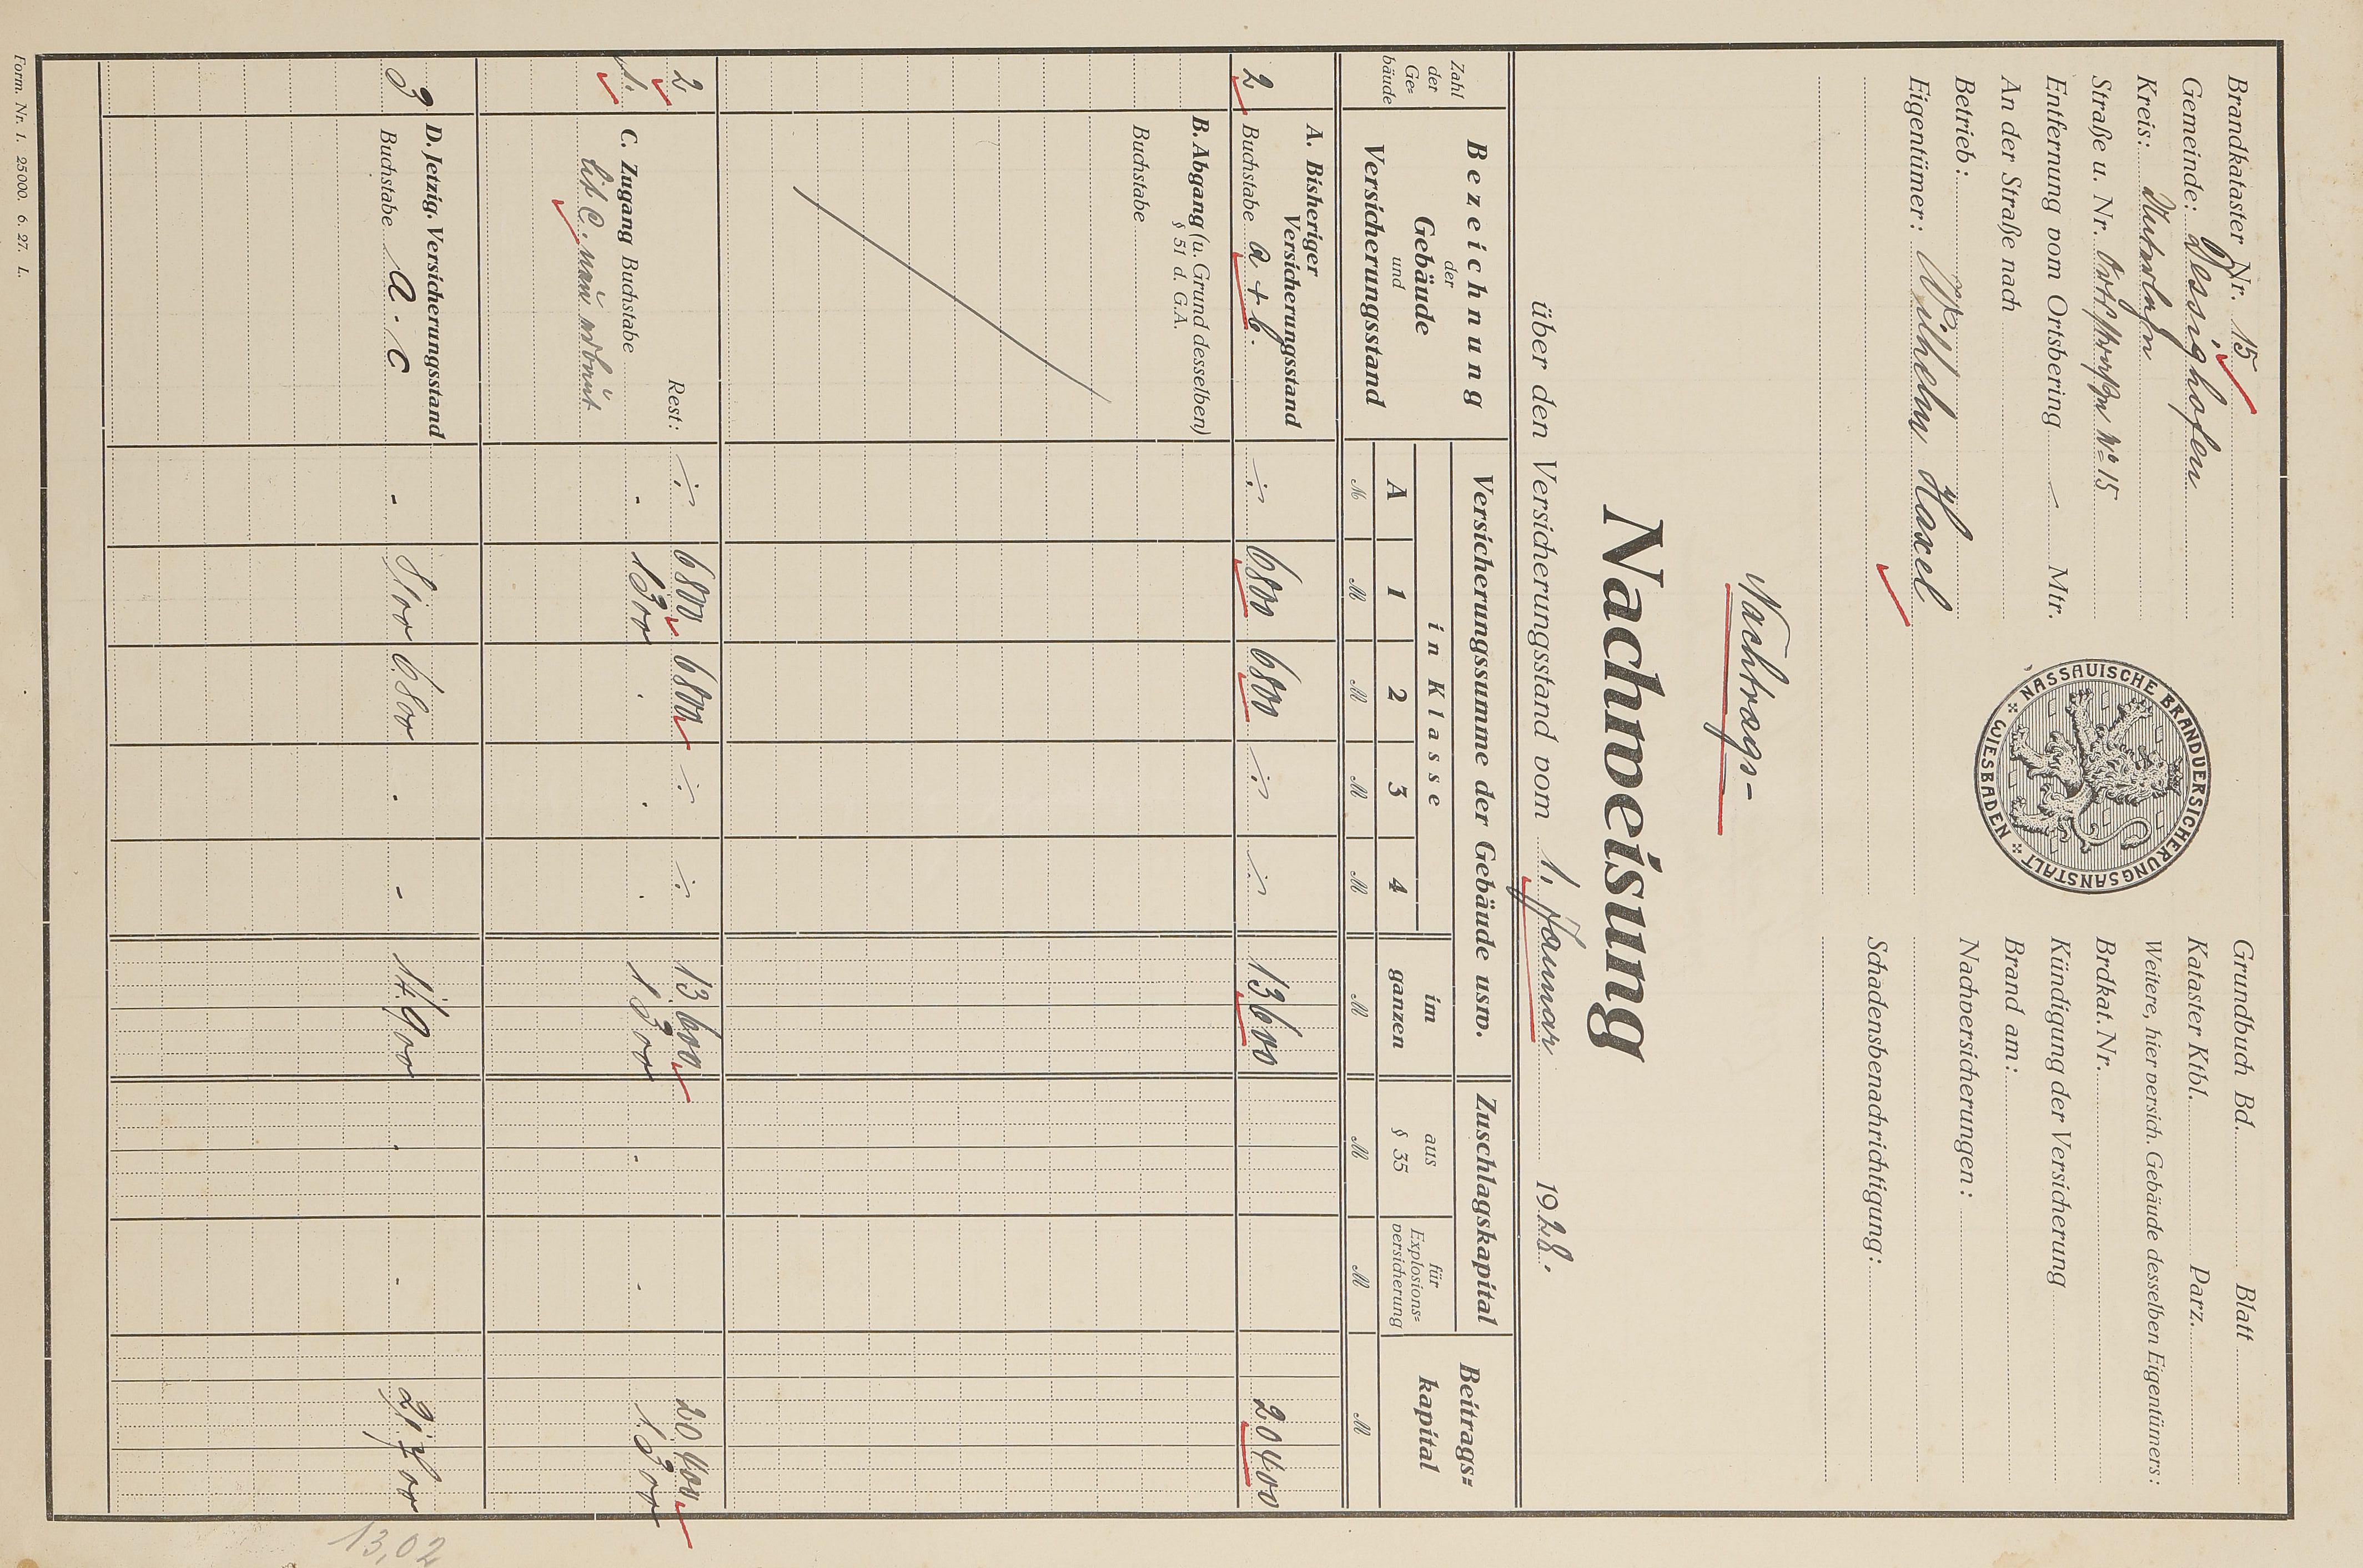 Brandkataster Nr. 15
Gemeinde: Dessighofen
Kreis: Unterlahn
Straße u. Nr. Ortsstraße No 15
Entfernung vom Ortsbering Mtr.
An der Straße nach
Betrieb:
Eigentümer: Wilhelm Haxel
NASSAUISCHE BRANDVERSICHERUNGSANSTALT
WIESBADEN
Grundbuch Bd. Blatt
Kataster Ktbl. Parz.
Weitere, hier versich. Gebäude desselben Eigentümers:
Brdkat. Nr.
Kündigung der Versicherung
Brand am:
Nachversicherungen:
Schadensbenachrichtigung:
Nachtrags-
Nachweisung
über den Versicherungsstand vom 1. Januar 1928.
Zahl der Ge=bäude
Bezeichnung der Gebäude und Versicherungsstand
Versicherungssumme der Gebäude usw.
in Klasse
A 1 2 3 4
im ganzen
Zuschlagskapital
aus § 35
für Explosions=versicherung
Beitrags=kapital
M M M M M M M M M
A. Bisheriger Versicherungsstand
2 Buchstabe a + b. 6800 6800 13600 20400
B. Abgang (u. Grund desselben)
§ 51 d. G.A.
Buchstabe
2 Rest: 6800 6800 13600 20400
1. C. Zugang Buchstabe - 1300 . . . 1300 - - 1300
lit c. neu erbaut
D. Jetzig. Versicherungsstand
3 Buchstabe a - c - 8100 6800 . - 14900 - - 21700
13,02
Form. Nr. 1. 25000. 6. 27. L.